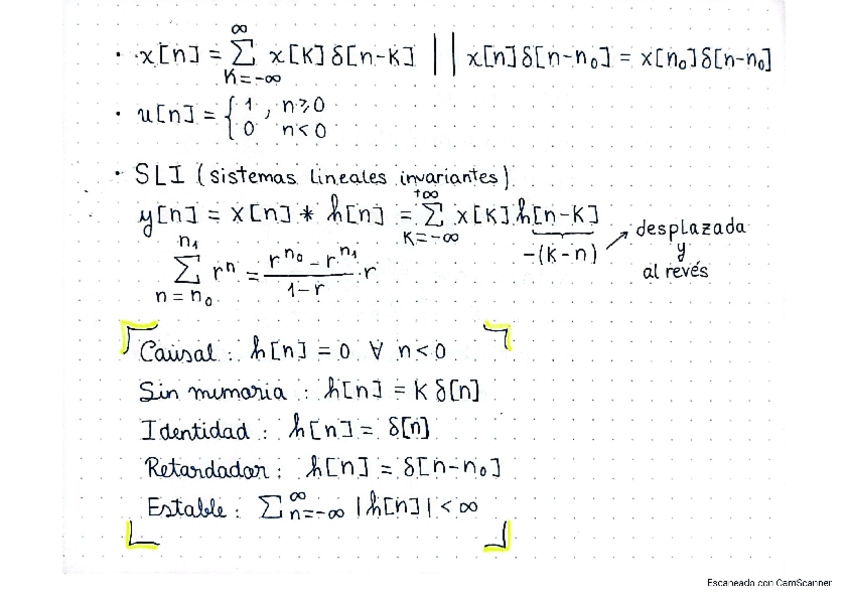 · x[n] = ∑_{K=-∞}^{∞} x[K] δ[n-K] || x[n] δ[n-n₀] = x[n₀] δ[n-n₀]
· u[n] = { 1, n≥0
0 n<0
· SLI (sistemas lineales invariantes)
y[n] = x[n] * h[n] = ∑_{K=-∞}^{+∞} x[K] h[n-K]
-(k-n)
desplazada
y
al revés
∑_{n=n₀}^{n₁} rⁿ = (r^{n₀} - r^{n₁})/(1-r) · r
Causal: h[n] = 0 ∀ n<0
Sin mimoria: h[n] = K δ[n]
Identidad: h[n] = δ[n]
Retardador: h[n] = δ[n-n₀]
Estable: ∑_{n=-∞}^{∞} |h[n]| < ∞
Escaneado con CamScanner